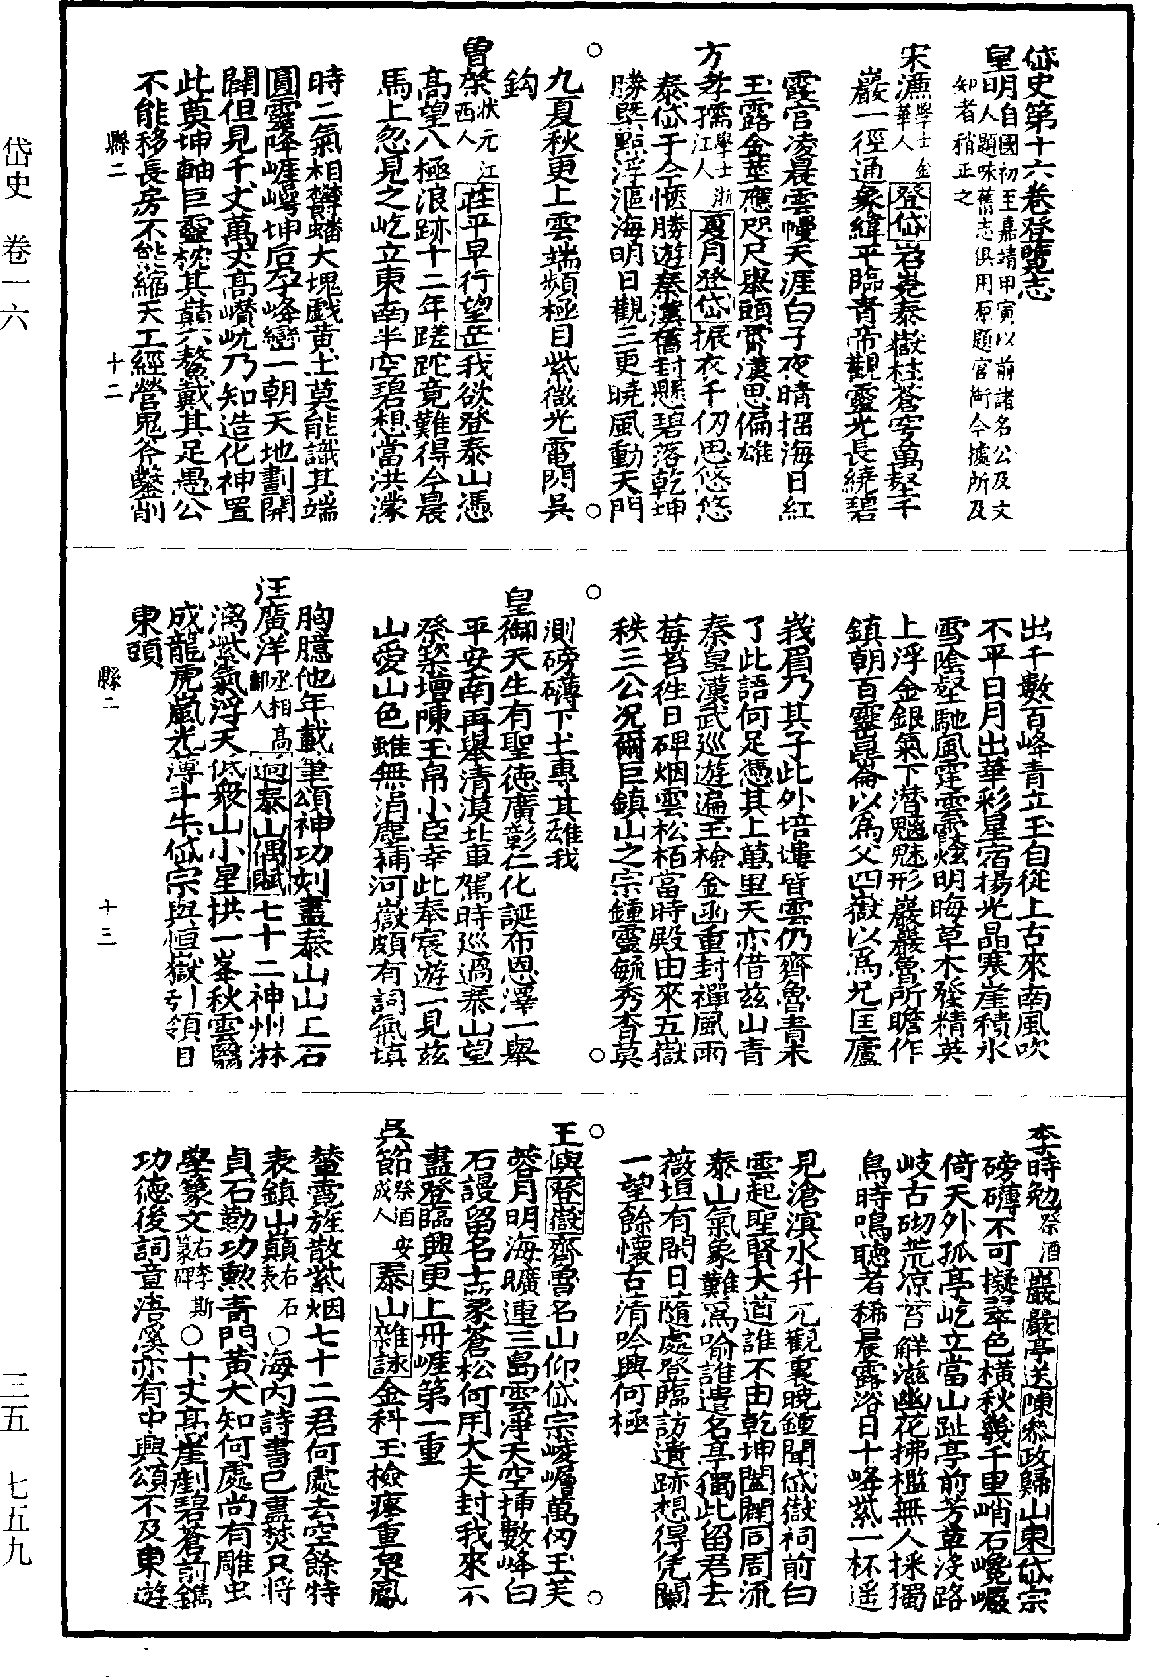 岱史第十六卷登覽志
皇明自國初至嘉靖甲寅以前諸名公及文
人題咏舊志俱用原題官銜今據所及
知者稍正之
宋濂學士金華人登岱岧嶤泰嶽柱蒼穹萬壑千
巖一徑通象緯平臨青帝觀靈光長繞碧
霞宮凌晨雲幔天涯白子夜晴搖海日紅
玉露金莖應咫尺舉頭霄漢思偏雄
方孝孺學士浙江人夏月登岱振衣千仞思悠悠
泰岱于今愜勝遊秦漢舊封懸碧落乾坤
勝槩點浮漚海明日觀三更曉風動天門
九夏秋更上雲端頻極目紫微光電閃吳
鈎
曾棨狀元江西人茌平早行望岳我欲登泰山憑
高望八極浪跡十二年蹉跎竟難得今晨
馬上忽見之屹立東南半空碧想當洪濛
時二氣相欝蟠大塊戲黄土莫能識其端
圓靈降崕嶀坤后孕峰巒一朝天地劃開
闢但見千丈萬丈高巑岏乃知造化神置
此奠坤軸巨靈枕其巔六鰲戴其足愚公
不能移長房不能縮天工經營鬼斧鑿削
出千數百峰青立玉自從上古來南風吹
不平日月出華彩星宿揚光晶寒崖積氷
雪陰壑馳風霆雲霞爐明晦草木發精英
上浮金銀氣下潜魑魅形巖巖魯所瞻作
鎮朝百靈崑崙以爲父四嶽以爲兄匡廬
峩眉乃其子此外培塿皆雲仍齊魯青未
了此語何足憑其上萬里天亦借兹山青
秦皇漢武巡遊遍玉檢金函重封禪風雨
莓苔徃日碑烟雲松栢當時殿由來五嶽
秩三公况爾巨鎮山之宗鍾靈毓秀杳莫
測磅礴下土專其雄我
皇御天生有聖德廣彰仁化誕布恩澤一舉
平安南再舉清漠北車駕時巡過泰山望
祭築壇陳玉帛小臣幸此奉宸遊一見兹
山愛山色雖無涓塵補河嶽頗有詞氣填
胸臆他年載筆頌神功刻盡泰山山上石
汪廣洋丞相高郵人過泰山偶賦七十二神州淋
漓紫氣浮天低衆山小星拱一峯秋雲翳
成龍虎嵐光薄斗牛岱宗與恒嶽引領日
東頭
李時勉祭酒巖巖亭送陳叅政歸山東岱宗
磅礴不可擬翠色橫秋幾千里峭石巉巖
倚天外孤亭屹立當山趾亭前芳草沒路
岐古砌荒凉苔鮮滋幽花拂檻無人採獨
鳥時鳴聽者稀晨露浴日十峰紫一杯遥
見滄溟水升元觀裏曉鍾聞岱嶽祠前白
雲起聖賢大道誰不由乾坤闔闢同周流
泰山氣象難爲喻誰遣名亭獨此留君去
薇垣有閑日隨處登臨訪遺跡想得凭闌
一望餘懷古清吟興何極
王與登嶽齊魯名山仰岱宗崚嶒萬仞玉芙
蓉月明海曠連三島雲淨天空揷數峰白
石謾留名士篆蒼松何用大夫封我來不
盡登臨興更上丹崕第一重
吳節祭酒安成人泰山雜詠金科玉檢瘞重泉鳳
輦霓旌散紫烟七十二君何處去空餘特
表鎮山巔右石表○海內詩書已盡焚只將
貞石勒功勲青門黄犬知何處尚有雕虫
學篆文右李斯篆碑○十丈髙崖劃碧蒼前鐫
功德後詞章浯溪亦有中興頌不及東遊
岱史 卷一六
三五 七五九
縣二 十二
縣二 十三